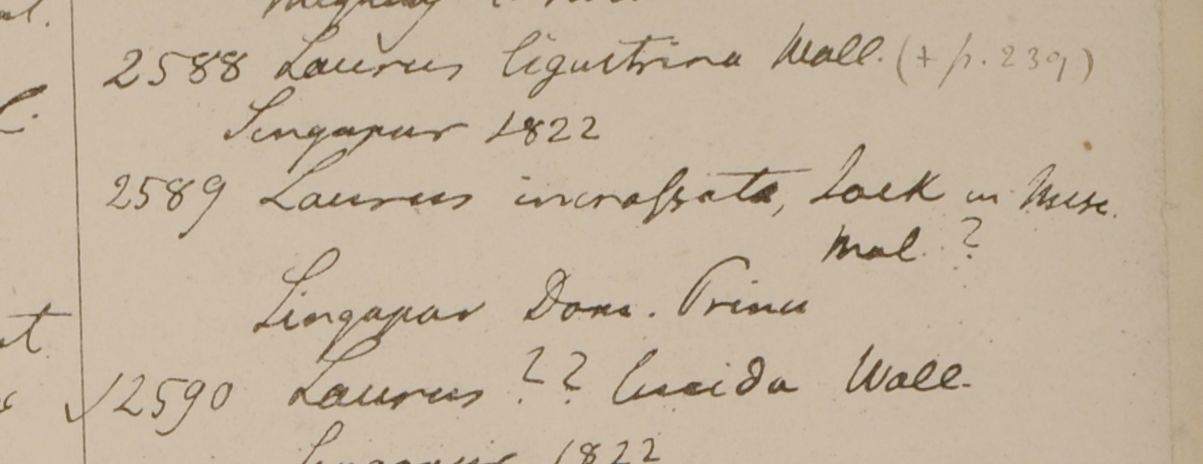 2588 Laurus ligustrina Wall. (+ p. 239)
Singapur 1822
2589 Laurus incrassata, Jack in Misc.
Mal. ?
Singapur Dom. Prince
√2590 Laurus ?? lucida Wall.
Singapur 1822